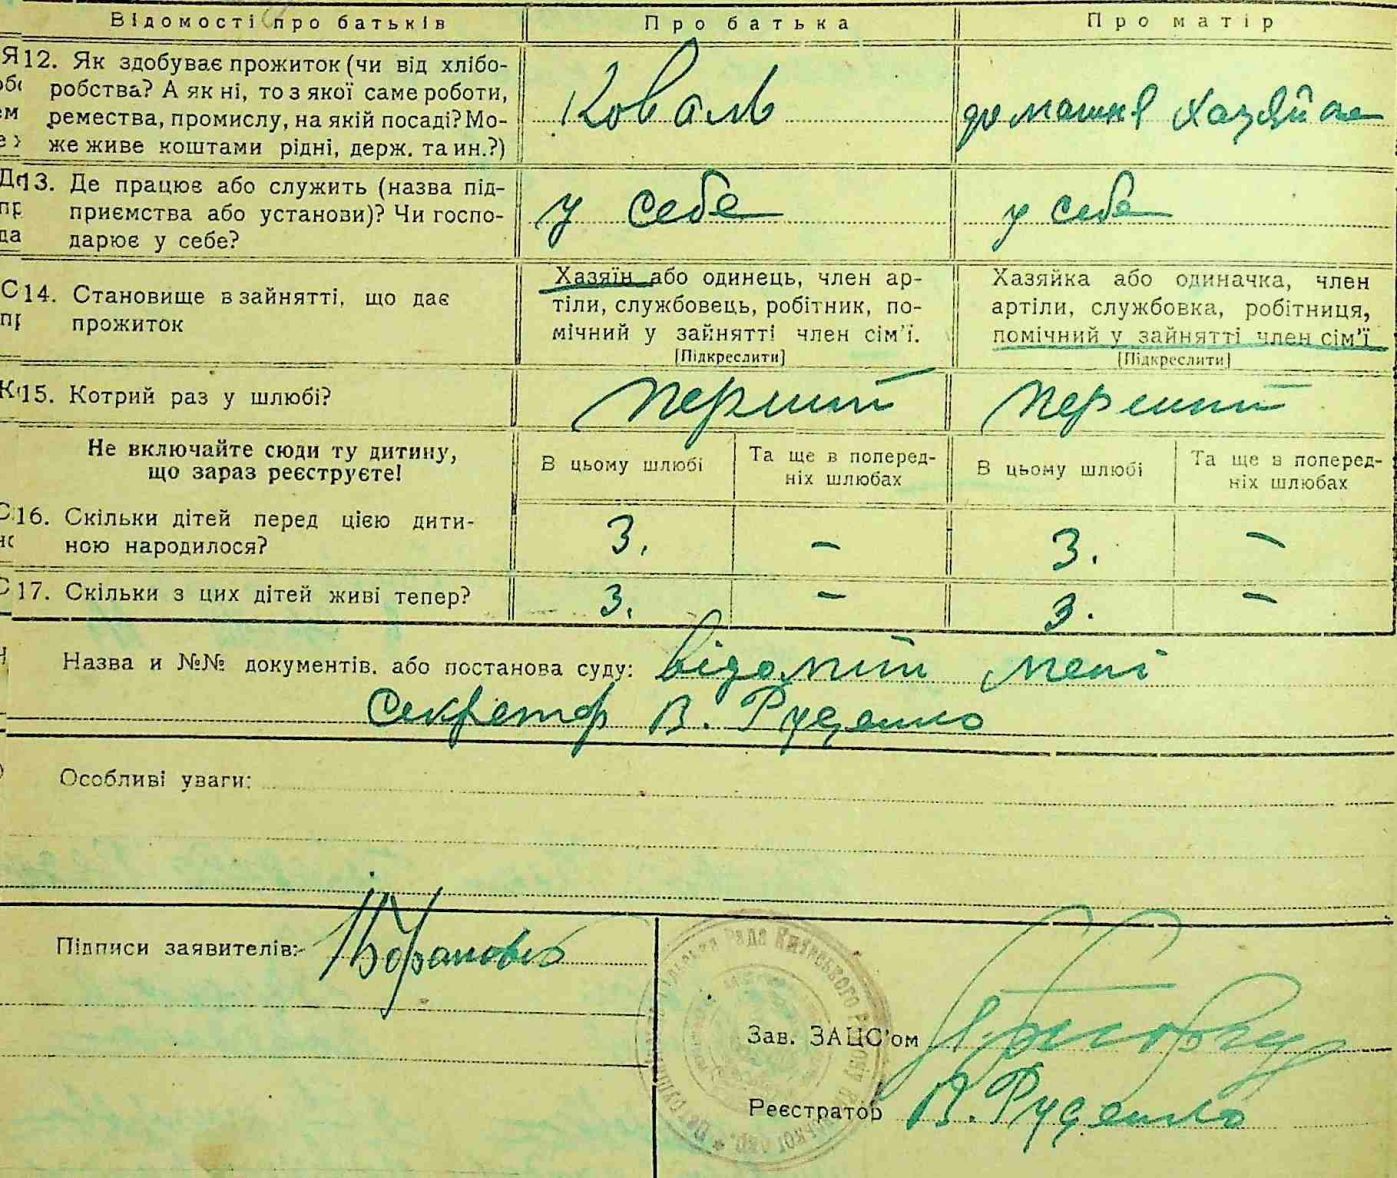 Відомості про батьків
Про батька
Про матір
12. Як здобуває прожиток (чи від хлібо-
робства? А як ні, то з якої саме роботи,
ремества, промислу, на якій посаді? Мо-
же живе коштами рідні, держ. та ин.?)
Коваль
домашня хазяйка
13. Де працює або служить (назва під-
приємства або установи)? Чи госпо-
дарює у себе?
у себе
у себе
14. Становище в зайнятті, що дає
прожиток
Хазяїн або одинець, член ар-
тіли, службовець, робітник, по-
мічний у зайнятті член сім'ї.
[Підкреслити]
Хазяйка або одиначка, член
артіли, службовка, робітниця,
помічний у зайнятті член сім'ї
[Підкреслити]
15. Котрий раз у шлюбі?
перший
перший
Не включайте сюди ту дитину,
що зараз реєструєте!
В цьому шлюбі
Та ще в поперед-
ніх шлюбах
В цьому шлюбі
Та ще в поперед-
ніх шлюбах
16. Скільки дітей перед цією дити-
ною народилося?
3. – 3. –
17. Скільки з цих дітей живі тепер?
3. – 3. –
Назва и №№ документів, або постанова суду: відомий мені
Секретар В. Руденко
Особливі уваги:
Підписи заявителів:-
Рада Київського Району
Зав. ЗАЦС'ом
Реєстратор В. Руденко